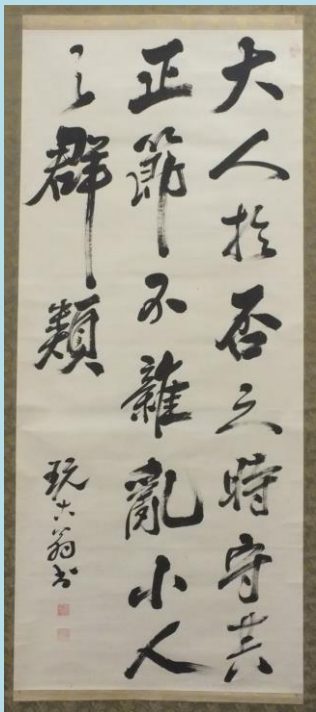 大人於否之時守其
正節不雜亂小人
之群類
玩古翁書